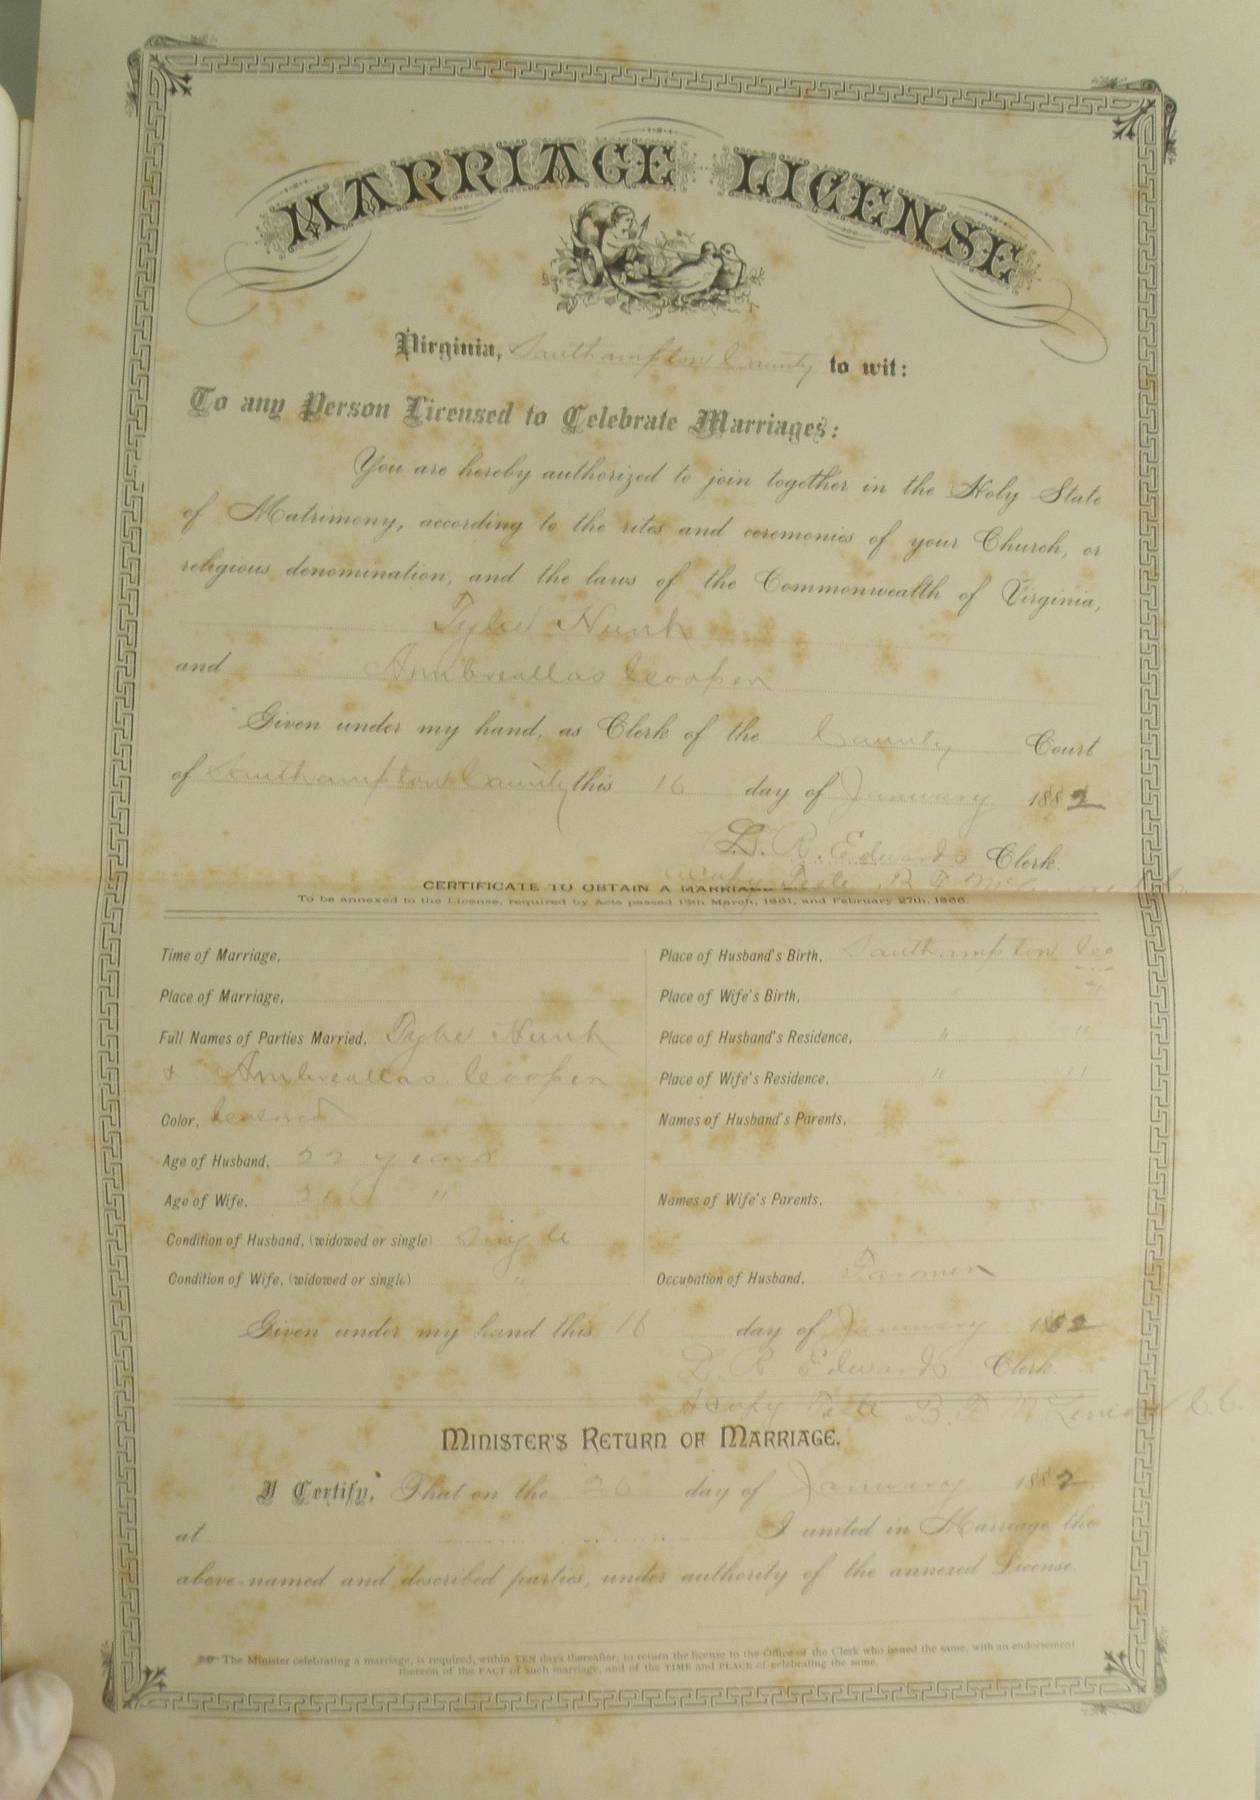 MARRIAGE LICENSE
Virginia, Southampton County to wit:
To any Person Licensed to Celebrate Marriages:
You are hereby authorized to join together in the Holy State
of Matrimony, according to the rites and ceremonies of your Church, or
religious denomination, and the laws of the Commonwealth of Virginia,
Hunt
and Cooper
Given under my hand, as Clerk of the County Court
of Southampton County this 16 day of January 1882
L. R. Edwards Clerk.
A Copy Teste B. F.
CERTIFICATE TO OBTAIN A MARRIAGE
To be annexed to the License, required by Acts passed 15th March, 1861, and February 27th, 1866.
Time of Marriage,
Place of Marriage,
Full Names of Parties Married, Hunt
& Cooper
Color, Colored
Age of Husband, 22 years
Age of Wife, 21 "
Condition of Husband, (widowed or single) Single
Condition of Wife, (widowed or single) "
Place of Husband's Birth, Southampton Co
Place of Wife's Birth, " "
Place of Husband's Residence, " "
Place of Wife's Residence, " "
Names of Husband's Parents,
Names of Wife's Parents,
Occupation of Husband, Farmer
Given under my hand this 16 day of January 1882
L. R. Edwards Clerk.
A Copy Teste B. F. C.C.
MINISTER'S RETURN OF MARRIAGE.
I Certify, That on the 26 day of January 1882
at I united in Marriage the
above-named and described parties, under authority of the annexed License.
The Minister celebrating a marriage, is required, within TEN days thereafter, to return the license to the Office of the Clerk who issued the same, with an endorsement
thereon of the FACT of such marriage, and of the TIME and PLACE of celebrating the same.